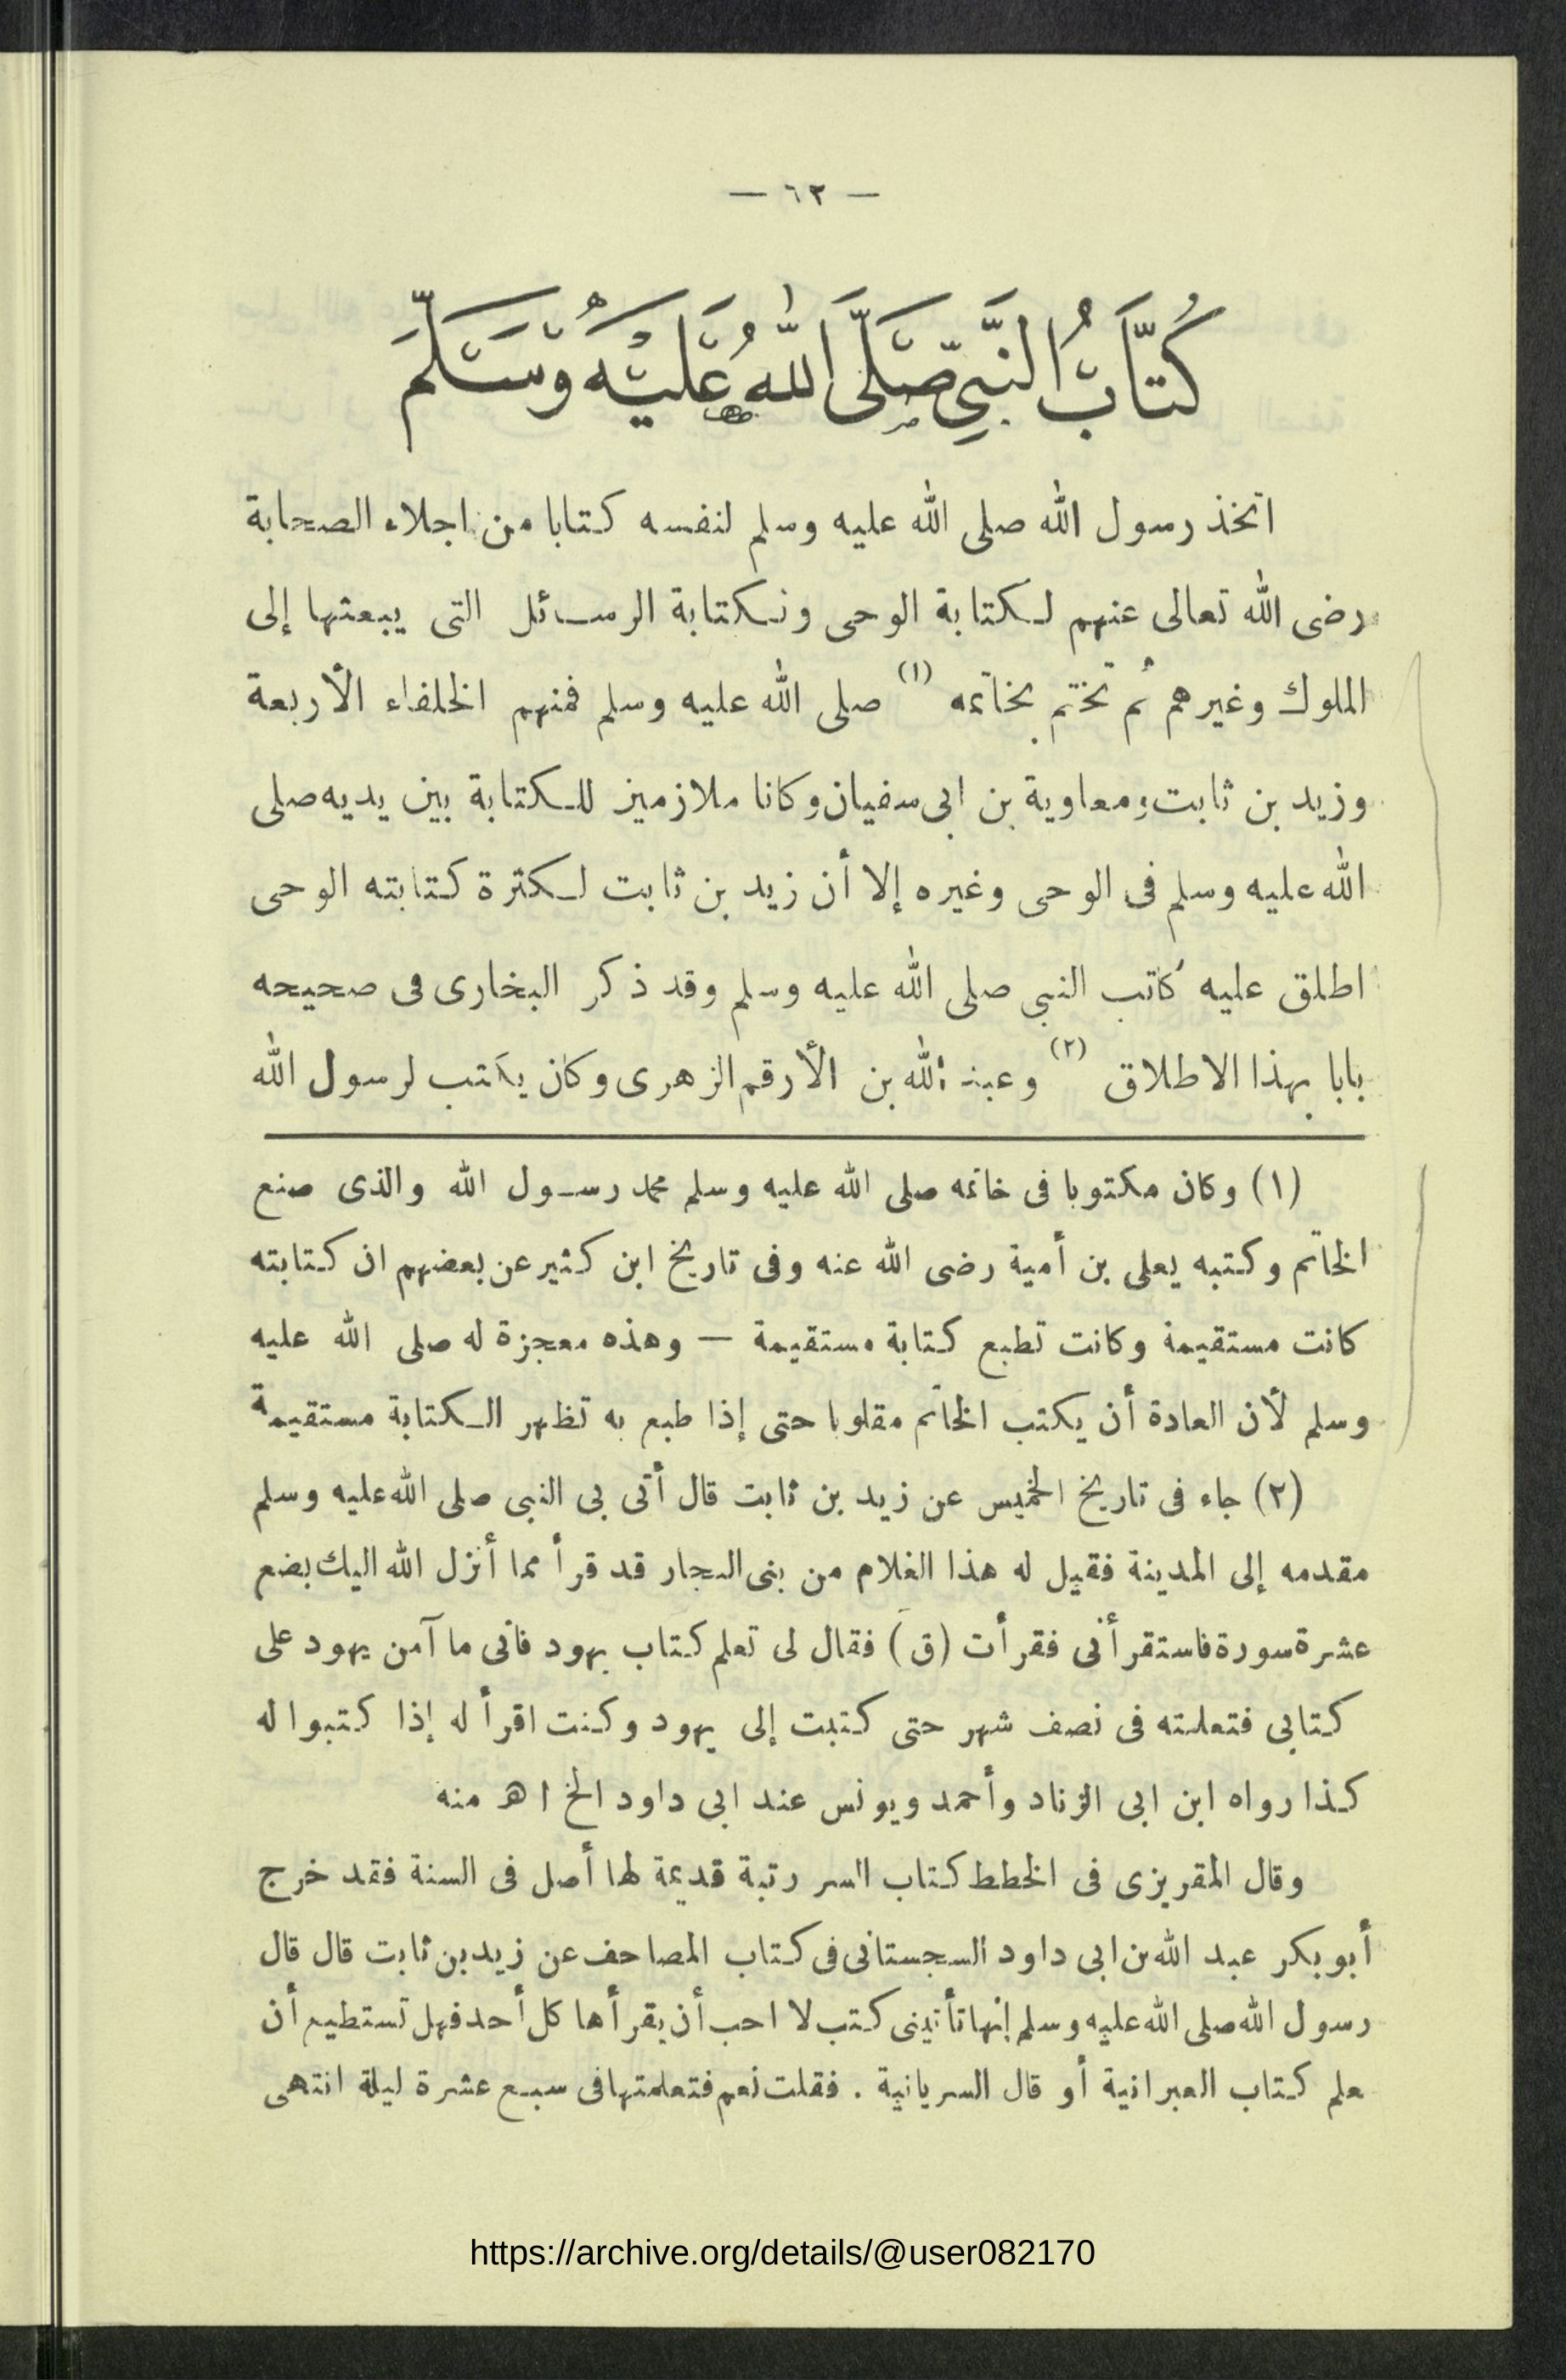 — ٦٣ —
كُتَّابُ النَّبِيِّ صَلَّى اللّٰهُ عَلَيْهِ وَسَلَّمَ
اتخذ رسول الله صلى الله عليه وسلم لنفسه كتابا من اجلاء الصحابة
رضى الله تعالى عنهم لكتابة الوحى ولكتابة الرسائل التى يبعثها إلى
الملوك وغيرهم ثم تختم بخاتمه (١) صلى الله عليه وسلم فمنهم الخلفاء الأربعة
وزيد بن ثابت ومعاوية بن ابى سفيان وكانا ملازمين للكتابة بين يديه صلى
الله عليه وسلم فى الوحى وغيره إلا أن زيد بن ثابت لكثرة كتابته الوحى
اطلق عليه كاتب النبي صلى الله عليه وسلم وقد ذكر البخارى فى صحيحه
بابا بهذا الاطلاق (٢) وعبد الله بن الأرقم الزهرى وكان يكتب لرسول الله
(١) وكان مكتوبا فى خاتمه صلى الله عليه وسلم محمد رسول الله والذى صنع
الخاتم وكتبه يعلى بن أمية رضى الله عنه وفى تاريخ ابن كثير عن بعضهم ان كتابته
كانت مستقيمة وكانت تطبع كتابة مستقيمة — وهذه معجزة له صلى الله عليه
وسلم لأن العادة أن يكتب الخاتم مقلوبا حتى إذا طبع به تظهر الكتابة مستقيمة
(٢) جاء فى تاريخ الخميس عن زيد بن ثابت قال أتى بى النبى صلى الله عليه وسلم
مقدمه إلى المدينة فقيل له هذا الغلام من بنى النجار قد قرأ مما أنزل الله اليك بضع
عشرة سورة فاستقرأنى فقرأت (ق) فقال لى تعلم كتاب يهود فانى ما آمن يهود على
كتابى فتعلمته فى نصف شهر حتى كتبت إلى يهود وكنت اقرأ له إذا كتبوا له
كذا رواه ابن ابى الزناد وأحمد ويونس عند ابى داود الخ اهـ منه
وقال المقريزى فى الخطط كتاب السر رتبة قديمة لها أصل فى السنة فقد خرج
أبو بكر عبد الله بن ابى داود السجستانى فى كتاب المصاحف عن زيد بن ثابت قال قال
رسول الله صلى الله عليه وسلم إنها تأتينى كتب لا احب أن يقرأها كل أحد فهل تستطيع أن
علم كتاب العبرانية أو قال السريانية . فقلت نعم فتعلمتها فى سبع عشرة ليلة انتهى
https://archive.org/details/@user082170